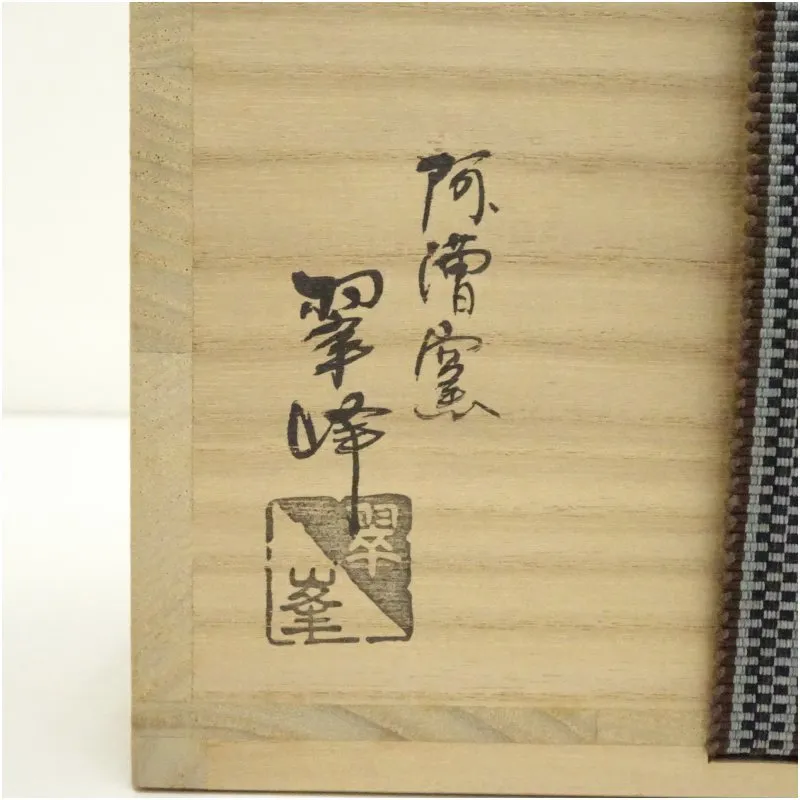 阿漕窯
翠峰
翠峯